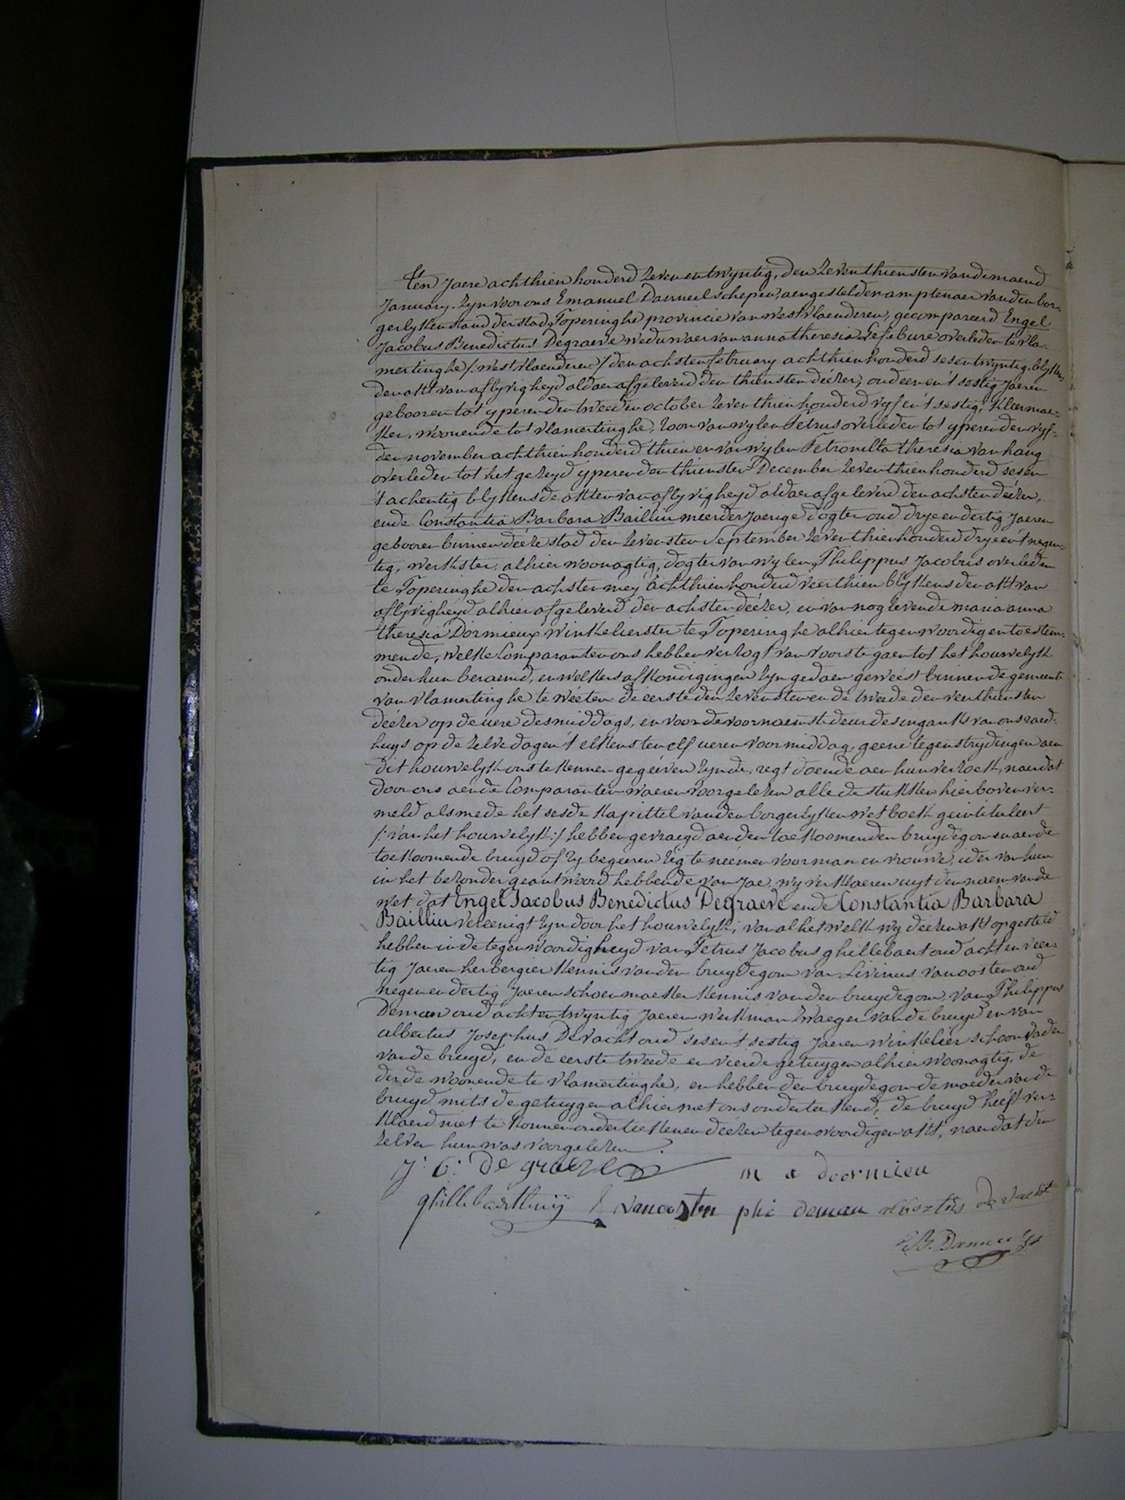 Ten Jaere achthien honderd zeven en twyntig, den zeventhiensten van de maend
January, zyn voor ons Emanuel Daemeel schepen, aengestelden amptenaer van den bor-
gerlyken stand der stad Poperinghe provincie van West Vlaenderen, gecompareerd Engel
Jacobus Benedictus Degraeve weduwaer van anna theresia Lefebure overleden te vla-
mertinghe /: West Vlaenderen :/ den achsten february achthien honderd ses en twyntig, blykens
den akt van aflyvigheyd aldaer afgeleverd den thiensten deézer, oud een en 't sestig Jaeren
geboren tot yperen den tweeden october zeventhien honderd vyf en 't sestig, kleermae-
ker, woonende tot vlamertinghe, zoon van wylen Petrus overleden tot yperen den vyf-
den november achthien honderd thien en van wylen Petronilla theresia van haug
overleden tot het gezeyd yperen den thiensten December zeventhien honderd ses en
't achentig blykens de akten van aflyvigheyd aldaer afgeleverd den achsten deézer,
ende Constantia Barbara Bailliu meerderjaerige dogter oud drye en dertig Jaeren
geboren binnen deéze stad den zevensten September zeventhien honderd drye en 't negen-
tig, werkster, alhier woonagtig, dogter van wylen Philippus Jacobus overleden
te Poperinghe den achsten mey achthien honderd veerthien blykens den akt van
aflyvigheyd alhier afgeleverd den achsten deézer, en van nog levende maria anna
theresia Dormieux winkelierster te Poperinghe alhier tegenwoordig en toestem-
mende, welke Comparanten ons hebben verzogt van voorts te gaen tot het houwelyk
onder hun beraemd, en welkers afkondigingen zyn gedaen geweest binnen de gemeente
van vlamertinghe te weéten de eerste den zevensten en de tweede den veerthiensten
deézer op de uere des middags, en voor de voornaemste deur des ingank van ons raed-
huys op de zelve dagen 't elkens ten elf ueren voormiddag, geene tegenstrydingen aen
dit houwelyk ons te kennen gegeéven zynde, regt doende aen hun verzoek, naer dat
door ons aen de Comparanten waeren voorgelezen alle de stukken hier boven ver-
meld als mede het sesde kapittel van den borgerlyken wet boek geintituleert
/: van het houwelyk :/ hebben gevraegd aen den toekoomenden bruydegom en aen de
toekoomende bruyd of zy begeeren zig te neemen voor man en vrouwe, ider van hun
in het bezonder geantwoord hebbende van Jae, wy verklaeren uyt den naem van de
wet dat Engel Jacobus Benedictus Degraeve ende Constantia Barbara
Bailliu vereenigt zyn door het houwelyk, van al het welk wy deézen akt opgesteld
hebben in de tegenwoordigheyd van Petrus Jacobus ghillebaert oud acht en veer-
tig Jaeren herbergier kennis van den bruydegom van Livinus Vanoosten oud
negen en dertig Jaeren schoenmaeker kennis van den bruydegom, van Philippus
Deman oud acht en twyntig Jaeren werkman zwaeger van de bruyd en van
albertus Josephus Devacht oud ses en 't sestig Jaeren winkelier schoonvader
van de bruyd, en de eerste tweede en vierde getuygen alhier woonagtig, de
derde woonende te vlamertinghe, en hebben den bruydegom de moeder van de
bruyd mits de getuygen alhier met ons onderteekend, de bruyd heeft ver-
klaerd niet te konnen onderteekenen deézen tegenwoordigen akt, naer dat den
zelven hun was voorgelezen.
J: b: de graeve m a doormieu
ghillebaert L vanoosten phi deman albertus de vacht